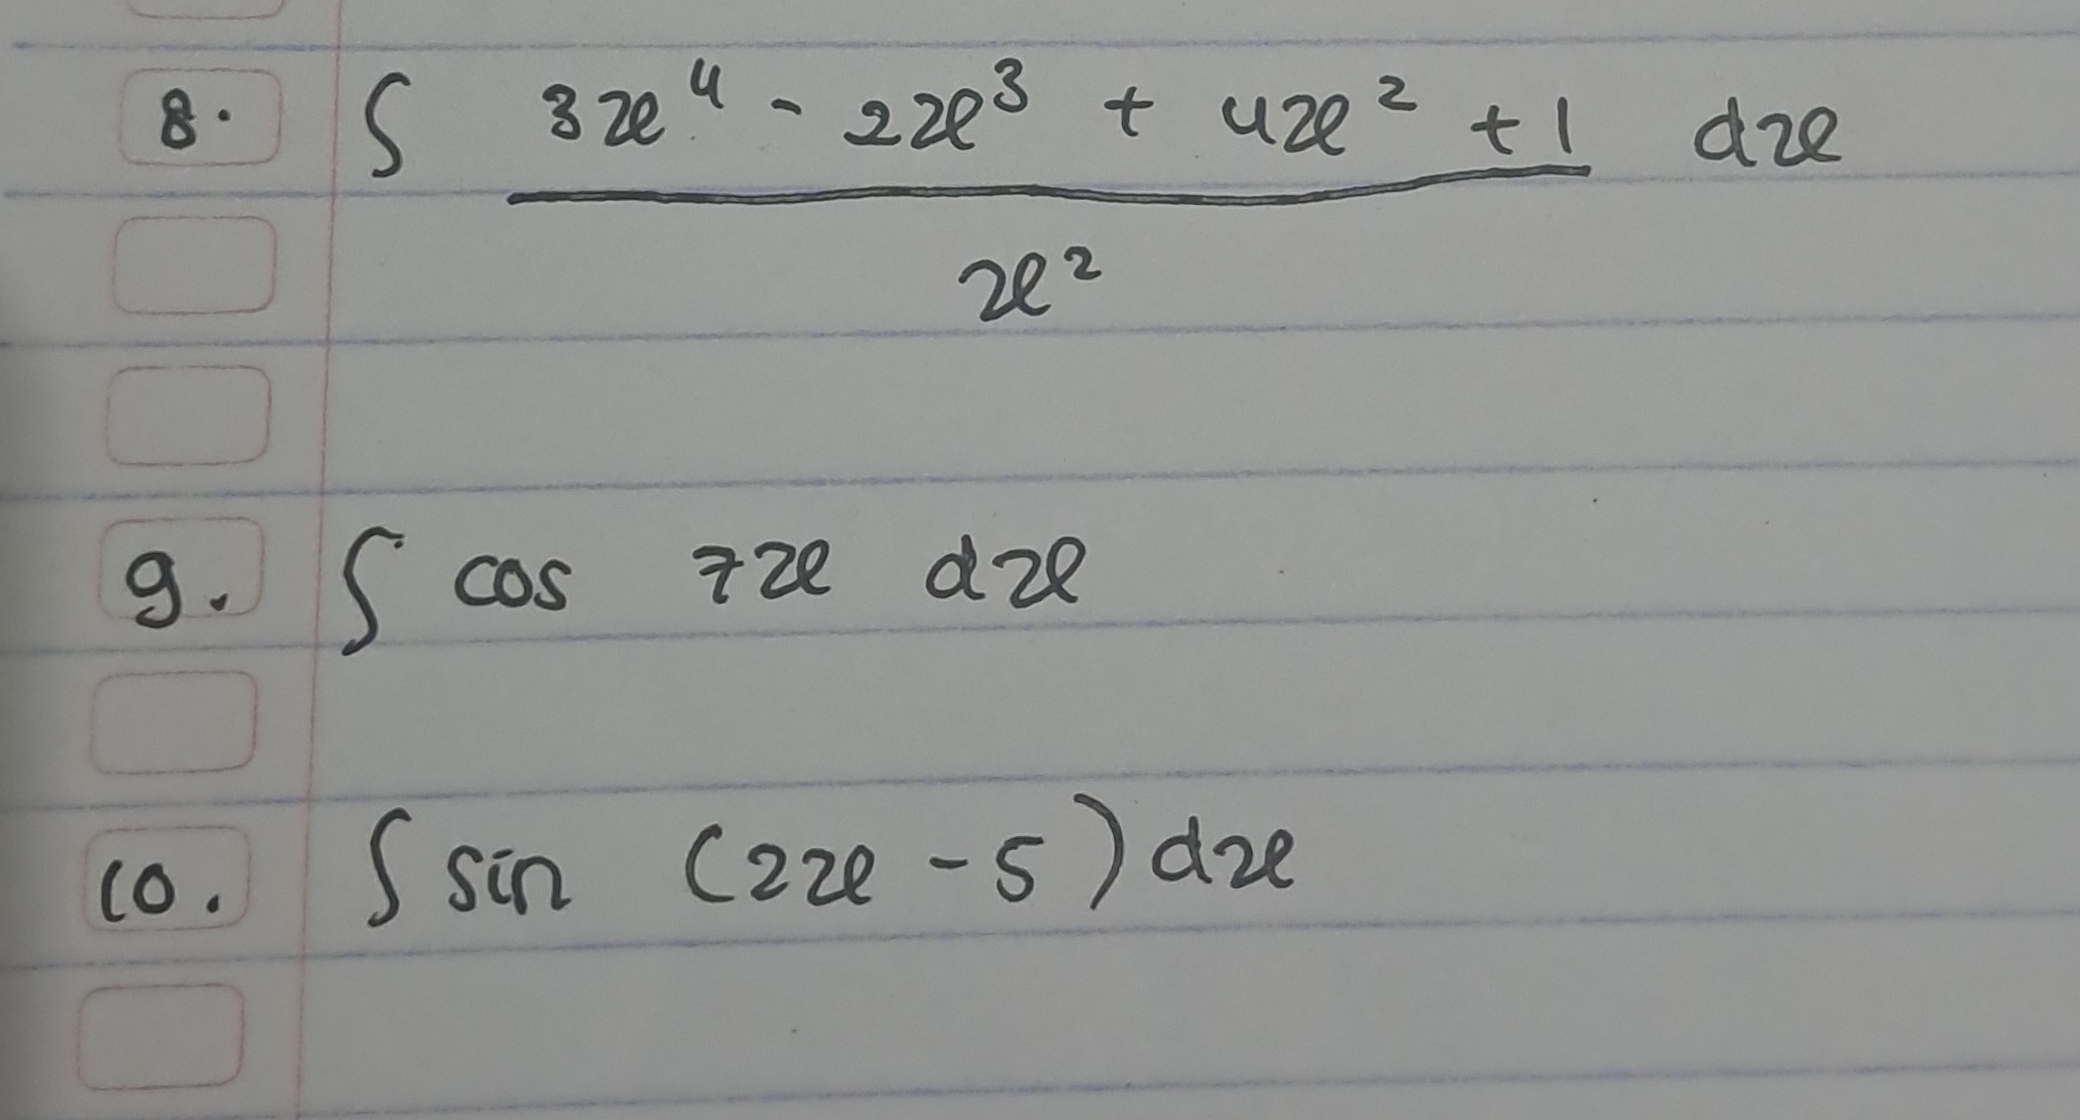 8. ∫ 3x⁴ - 2x³ + 4x² + 1 dx
x²
9. ∫ cos 7x dx
10. ∫ sin (2x - 5) dx